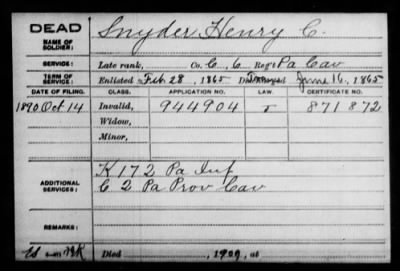 DEAD
NAME OF SOLDIER: Snyder Henry C.
SERVICE: Late rank, Co. C, 6 Reg't Pa Cav
TERM OF SERVICE: Enlisted Feb 28, 1865 Discharged June 16, 1865
DATE OF FILING. CLASS. APPLICATION NO. LAW. CERTIFICATE NO.
1890 Oct 14 Invalid, 944904 871872
Widow,
Minor,
ADDITIONAL SERVICES: K 172 Pa Inf
C 2 Pa Prov Cav
REMARKS:
Died , 190 , at